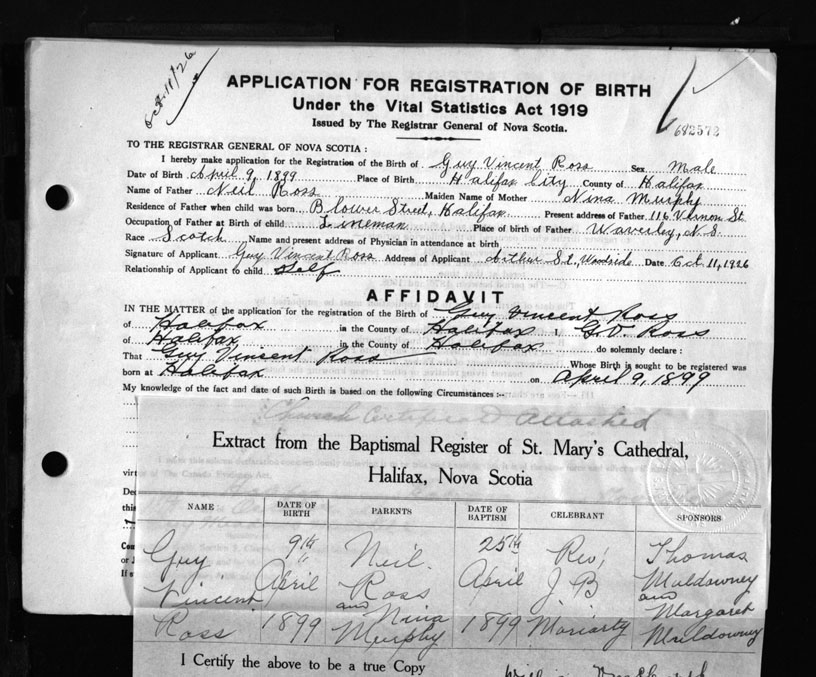 Oct. 11th/26
APPLICATION FOR REGISTRATION OF BIRTH
Under the Vital Statistics Act 1919
Issued by The Registrar General of Nova Scotia.
682572
TO THE REGISTRAR GENERAL OF NOVA SCOTIA :
I hereby make application for the Registration of the Birth of Guy Vincent Ross Sex Male
Date of Birth April 9, 1899 Place of Birth Halifax City County of Halifax
Name of Father Neil Ross Maiden Name of Mother Nina Murphy
Residence of Father when child was born Blower Street, Halifax. Present address of Father 116 Vernon St.
Occupation of Father at Birth of child Lineman Place of birth of Father Waverley, N.S.
Race Scotch Name and present address of Physician in attendance at birth
Signature of Applicant Guy Vincent Ross Address of Applicant Arthur St., Woodside Date Oct 11, 1926
Relationship of Applicant to child Self
AFFIDAVIT
IN THE MATTER of the application for the registration of the Birth of Guy Vincent Ross
of Halifax in the County of Halifax I, G.V. Ross
of Halifax in the County of Halifax do solemnly declare :
That Guy Vincent Ross Whose Birth is sought to be registered was
born at Halifax on April 9, 1899
My knowledge of the fact and date of such Birth is based on the following Circumstances :-
Church Certificate Attached
Extract from the Baptismal Register of St. Mary's Cathedral,
Halifax, Nova Scotia
NAME DATE OF BIRTH PARENTS DATE OF BAPTISM CELEBRANT SPONSORS
Guy 9th Neil 25th Rev. Thomas
Vincent April Ross April J B Muldowney
and and
Ross 1899 Nina Murphy 1899 Moriarty Margaret Muldowney
I Certify the above to be a true Copy